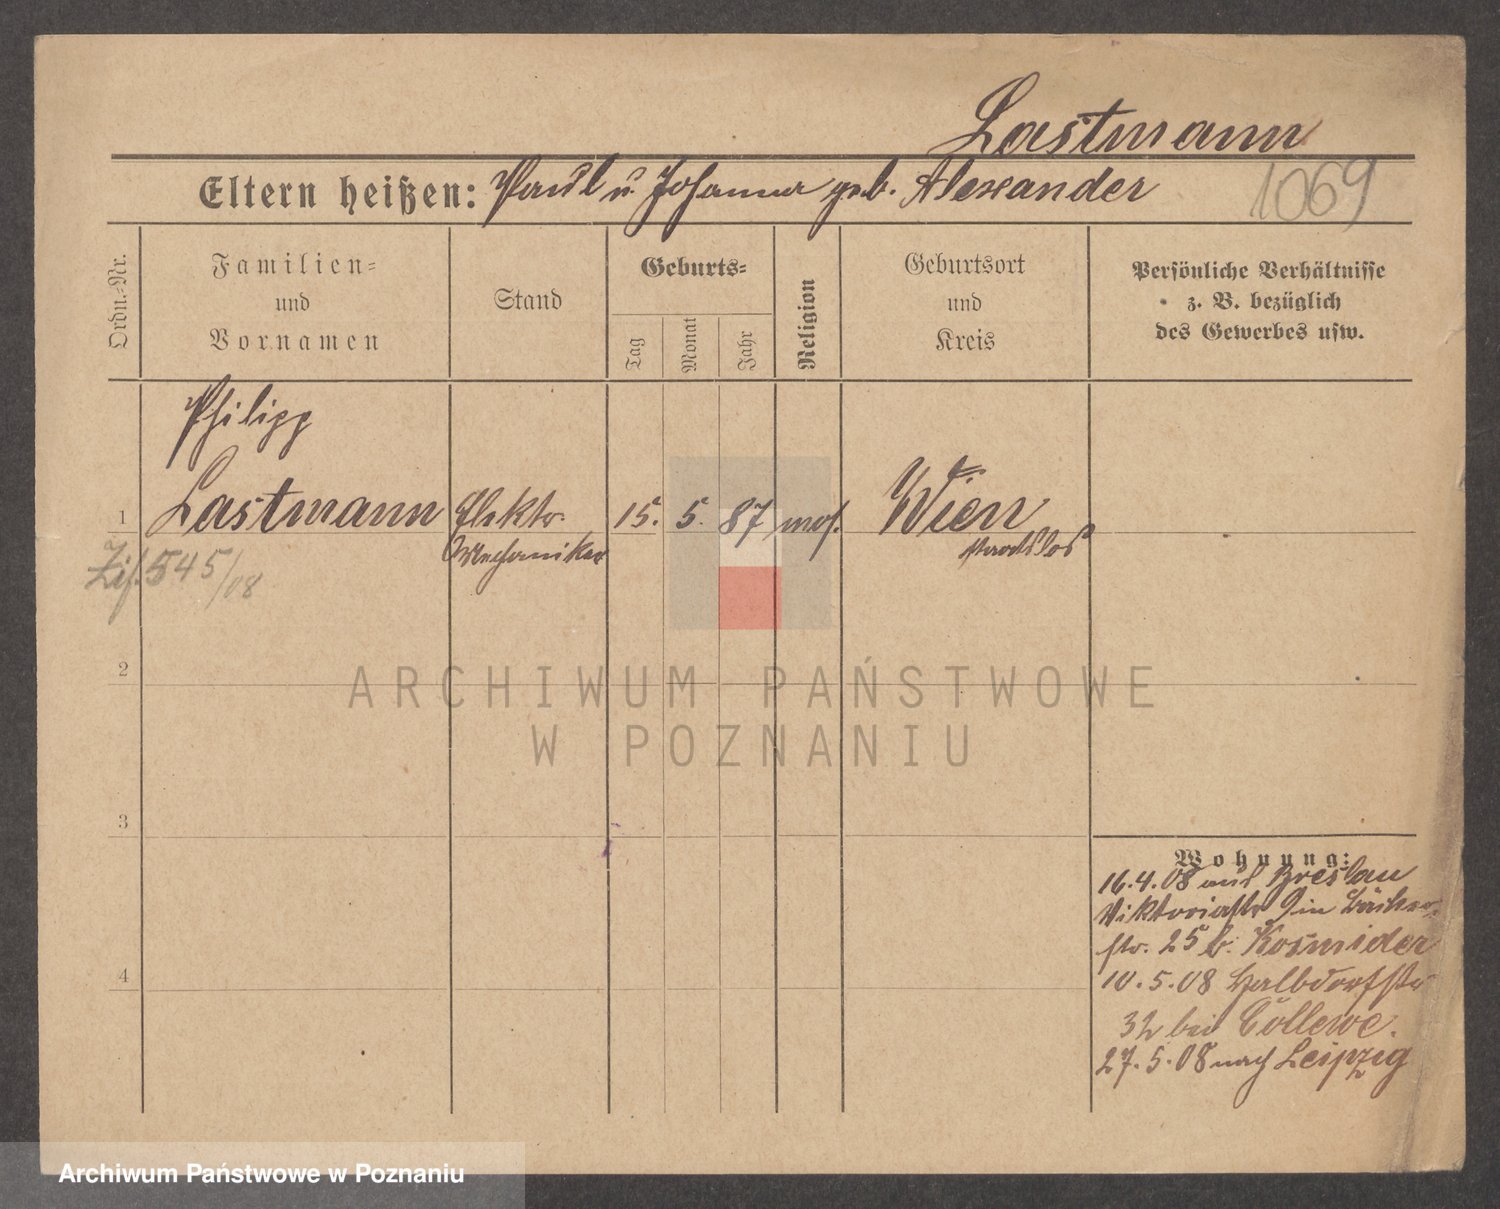 Lastmann
Eltern heißen: Paul u. Johanna geb. Alexander
1069
Ordn.-Nr.
Familien-
und
Vornamen
Stand
Geburts-
Tag
Monat
Jahr
Religion
Geburtsort
und
Kreis
Persönliche Verhältnisse
z. B. bezüglich
des Gewerbes usw.
Philipp
1 Lastmann Elektr. 15. 5. 87 mos. Wien
Mechaniker staatslos
545/08
2
3
4
Wohnung:
16.4.08 aus Breslau
Viktoriastr 9 in Bäcker-
str. 25 b. Kosmider
10.5.08 Halbdorfstr
32 bei Collewe.
27.5.08 nach Leipzig
ARCHIWUM PAŃSTWOWE
W POZNANIU
Archiwum Państwowe w Poznaniu